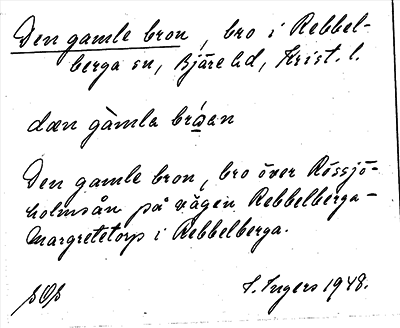 Den gamle bron, bro i Rebbel-
berga sn, Bjäre hd, Krist. l.
dæn gàmla bróen
Den gamle bron, bro över Rössjö-
holmsån på vägen Rebbelberga-
Margretetorp i Rebbelberga.
I. Ingers 1948.